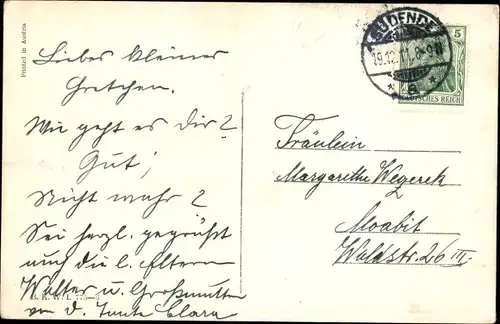 Printed in Austria
Liebes kleines
Gretchen.
Wie geht es Dir?
Gut;
Nicht wahr?
Sei herzl. gegrüßt
und die l. Eltern
Walter u. Großmutter
von d. Tante Clara
B. K. W. I.
SÜDENDE
19.12.11. 8-9N
* a *
5
DEUTSCHES REICH
Fräulein
Margarethe Wegerek
Moabit
Waldstr. 26 III.